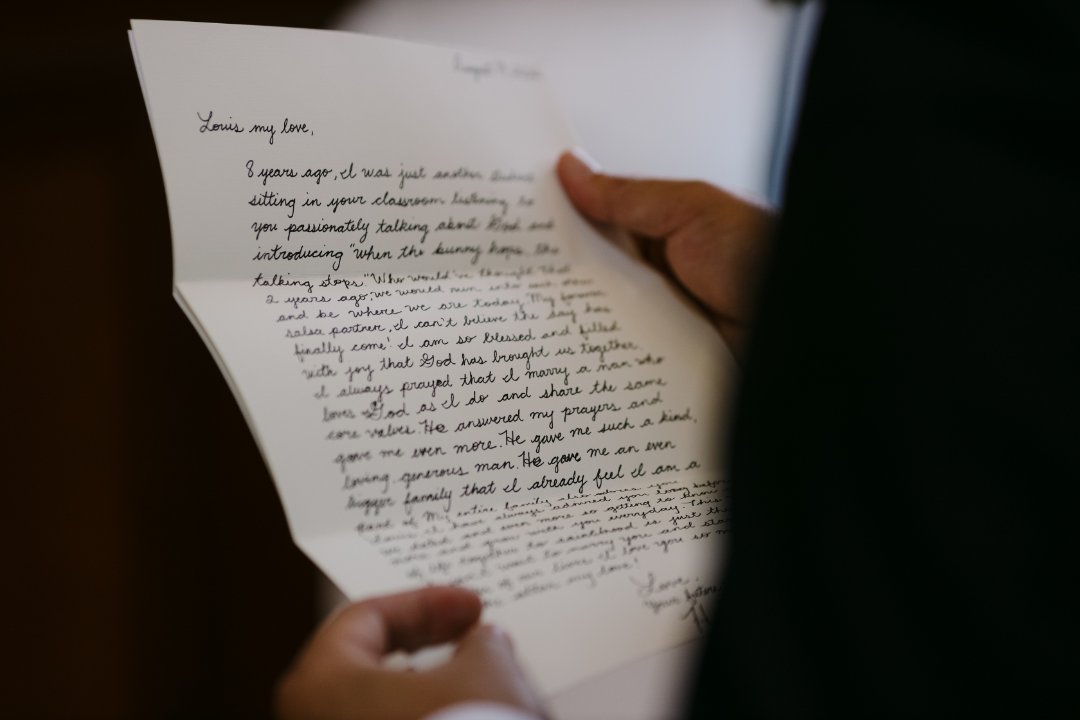 Louis my love,
8 years ago, I was just another student
sitting in your classroom listening to
you passionately talking about God and
introducing "When the bunny hops, the
talking stops." Who would've thought that
2 years ago, we would run into each other
and be where we are today. My forever
salsa partner, I can't believe the day has
finally come! I am so blessed and filled
with joy that God has brought us together.
I always prayed that I marry a man who
loves God as I do and share the same
core values. He answered my prayers and
gave me even more. He gave me such a kind,
loving, generous man. He gave me an even
bigger family that I already feel I am a
part of. My entire family also adores you
I have always admired you even before
we dated and even more so getting to know
more and grow with you everyday. This
of life together to sainthood is just the
want to marry you and
of our lives. I love you so
my love!
Love,
your future